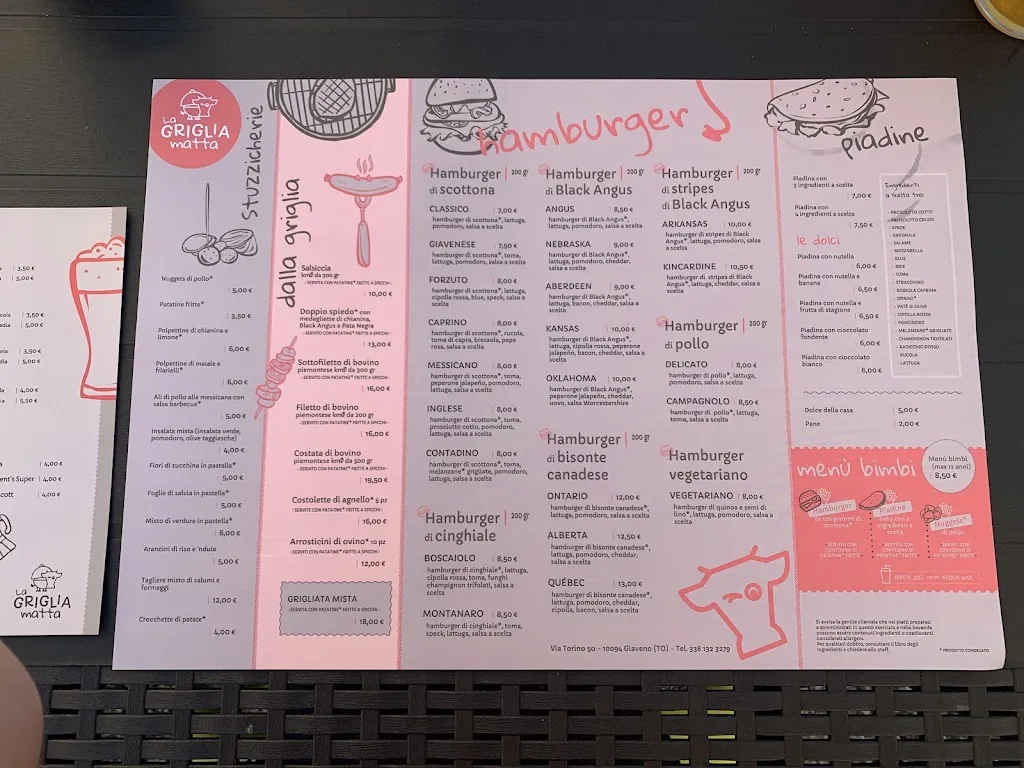 La
GRIGLIA
matta
Stuzzicherie
Nuggets di pollo*
5,00 €
Patatine fritte*
3,50 €
Polpettine di chianina e
limone*
6,00 €
Polpettine di maiale e
friarielli*
6,00 €
Ali di pollo alla messicana con
salsa barbecue*
5,00 €
Insalata mista (insalata verde,
pomodoro, olive taggiasche)
4,00 €
Fiori di zucchina in pastella*
5,00 €
Foglie di salvia in pastella*
5,00 €
Misto di verdure in pastella*
6,00 €
Arancini di riso e 'nduia
5,00 €
Tagliere misto di salumi e
formaggi
12,00 €
Crocchette di patate*
4,00 €
dalla griglia
Salsiccia
km0 da 300 gr
-SERVITO CON PATATINE* FRITTE A SPICCHI-
10,00 €
Doppio spiedo* con
medagliette di chianina,
Black Angus e Pata Negra
-SERVITO CON PATATINE* FRITTE A SPICCHI-
13,00 €
Sottofiletto di bovino
piemontese km0 da 300 gr
-SERVITO CON PATATINE* FRITTE A SPICCHI-
16,00 €
Filetto di bovino
piemontese km0 da 200 gr
-SERVITO CON PATATINE* FRITTE A SPICCHI-
16,00 €
Costata di bovino
piemontese km0 da 500 gr
-SERVITO CON PATATINE* FRITTE A SPICCHI-
19,50 €
Costolette di agnello* 5 pz
-SERVITI CON PATATINE* FRITTE A SPICCHI-
16,00 €
Arrosticini di ovino* 10 pz
-SERVITI CON PATATINE* FRITTE A SPICCHI-
12,00 €
GRIGLIATA MISTA
-SERVITO CON PATATINE* FRITTE A SPICCHI-
18,00 €
hamburger
Hamburger | 200 gr
di scottona
CLASSICO | 7,00 €
hamburger di scottona*, lattuga,
pomodoro, salsa a scelta
GIAVENESE | 7,50 €
hamburger di scottona*, toma,
lattuga, pomodoro, salsa a scelta
FORZUTO | 8,00 €
hamburger di scottona*, lattuga,
cipolla rossa, blue, speck, salsa a
scelta
CAPRINO | 8,00 €
hamburger di scottona*, rucola,
toma di capra, bresaola, pepe
rosa, salsa a scelta
MESSICANO | 8,00 €
hamburger di scottona*, toma,
peperone jalapeño, pomodoro,
lattuga, salsa a scelta
INGLESE | 8,00 €
hamburger di scottona*, toma,
prosciutto cotto, pomodoro,
lattuga, salsa a scelta
CONTADINO | 8,00 €
hamburger di scottona*, toma,
melanzane* grigliate, pomodoro,
lattuga, salsa a scelta
Hamburger | 200 gr
di cinghiale
BOSCAIOLO | 8,50 €
hamburger di cinghiale*, lattuga,
cipolla rossa, toma, funghi
champignon trifolati, salsa a
scelta
MONTANARO | 8,50 €
hamburger di cinghiale*, toma,
speck, lattuga, salsa a scelta
Hamburger | 200 gr
di Black Angus
ANGUS | 8,50 €
hamburger di Black Angus*,
lattuga, pomodoro, salsa a scelta
NEBRASKA | 9,00 €
hamburger di Black Angus*,
lattuga, pomodoro, cheddar,
salsa a scelta
ABERDEEN | 9,00 €
hamburger di Black Angus*,
lattuga, bacon, cheddar, salsa a
scelta
KANSAS | 10,00 €
hamburger di Black Angus*,
lattuga, cipolla rossa, peperone
jalapeño, bacon, cheddar, salsa a
scelta
OKLAHOMA | 10,00 €
hamburger di Black Angus*,
peperone jalapeño, cheddar,
uovo, salsa Worcestershire
Hamburger | 200 gr
di bisonte
canadese
ONTARIO | 12,00 €
hamburger di bisonte canadese*,
lattuga, pomodoro, salsa a scelta
ALBERTA | 12,50 €
hamburger di bisonte canadese*,
lattuga, pomodoro, cheddar,
salsa a scelta
QUÉBEC | 13,00 €
hamburger di bisonte canadese*,
lattuga, pomodoro, cheddar,
cipolla, bacon, salsa a scelta
Hamburger | 200 gr
di stripes
di Black Angus
ARKANSAS | 10,00 €
hamburger di stripes di Black
Angus*, lattuga, pomodoro, salsa
a scelta
KINCARDINE | 10,50 €
hamburger di stripes di Black
Angus*, lattuga, cheddar, salsa a
scelta
Hamburger | 200 gr
di pollo
DELICATO | 8,00 €
hamburger di pollo*, lattuga,
pomodoro, salsa a scelta
CAMPAGNOLO | 8,50 €
hamburger di pollo*, lattuga,
toma, salsa a scelta
Hamburger
vegetariano
VEGETARIANO | 8,00 €
hamburger di quinoa e semi di
lino*, lattuga, pomodoro, salsa a
scelta
Via Torino 50 - 10094 Giaveno (TO) - Tel. 338 132 3279
piadine
Piadina con
3 ingredienti a scelta
7,00 €
Piadina con
4 ingredienti a scelta
7,50 €
le dolci
Piadina con nutella
6,00 €
Piadina con nutella e
banane
6,50 €
Piadina con nutella e
frutta di stagione
6,50 €
Piadina con cioccolato
fondente
6,00 €
Piadina con cioccolato
bianco
6,00 €
Ingredienti
a scelta tra:
- PROSCIUTTO COTTO
- PROSCIUTTO CRUDO
- SPECK
- BRESAOLA
- SALAME
- MOZZARELLA
- BLUE
- BRIE
- TOMA
- STRACCHINO
- ROBIOLA CAPRINA
- SPINACI*
- PATÈ DI OLIVE
- CIPOLLA ROSSA
- POMODORO
- MELANZANE* GRIGLIATE
- CHAMPIGNON TRIFOLATI
- RADICCHIO ROSSO
- RUCOLA
- LATTUGA
Dolce della casa | 5,00 €
Pane | 2,00 €
menù bimbi
Menù bimbi
(max 12 anni)
8,50 €
Hamburger
scottona*
- SERVITO CON
CONTORNO DI
PATATINE* FRITTE
Piadina
baby con 2
ingredienti a
scelta
- SERVITA CON
CONTORNO DI
PATATINE* FRITTE
Nuggets*
di pollo
- SERVITI CON
CONTORNO DI
PATATINE* FRITTE
Si avvisa la gentile clientela che nei piatti preparati
e somministrati in questo esercizio e nelle bevande
possono essere contenuti ingredienti o coadiuvanti
considerati allergeni.
Per qualsiasi dubbio, consultare il libro degli
ingredienti e chiedere allo staff.
* PRODOTTO CONGELATO
3,50 €
5,00 €
3,50 €
5,00 €
3,50 €
5,00 €
4,00 €
5,50 €
4,00 €
ent's Super | 4,00 €
cott | 4,00 €
La
GRIGLIA
matta